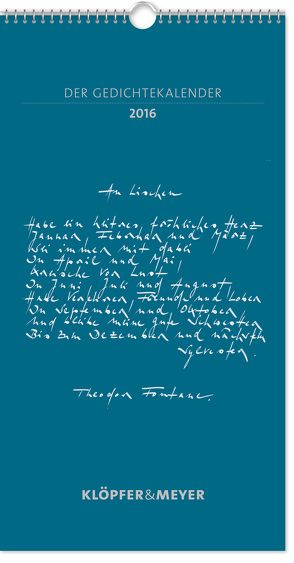 DER GEDICHTEKALENDER
2016
An Lischen
Habe ein heitres, fröhliches Herz
Januar, Februar und März,
Sei immer mit dabei
In April und Mai,
Kreische vor Lust
In Juni, Juli und August,
Habe Verehrer, Freunde und Lober
In September und Oktober
Und bleibe meine gute Schwester
Bis zum Dezember und nächsten
Sylvester.
Theodor Fontane.
KLÖPFER&MEYER